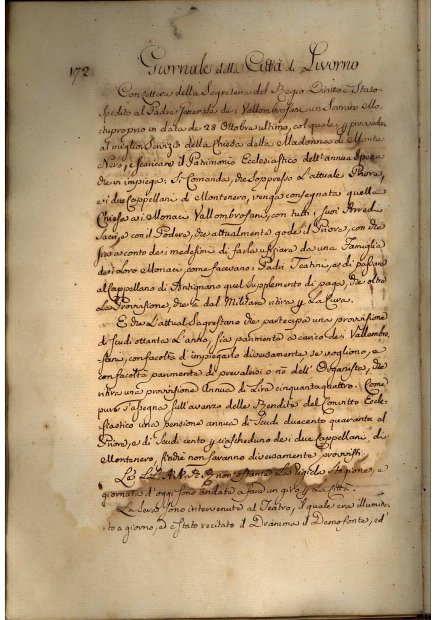 172 Giornale della Città di Livorno
Con Lettera della Segreteria del Regio Diritto è Stato
spedito al Padre Generale de i Vallombrosani un Sovrano Mo-
tuproprio in data de 28 Ottobre ultimo, col quale p provvedere
al miglior Servizio della Chiesa della Madonna di Monte
Nero, e scaricare il Patrimonio Ecclesiastico dell'annua Spesa
che vi impiega: Si Comanda, che soppresso L'attuale Priore,
e i due Cappellani di Montenero, venga consegnata quella
Chiesa a i Monaci Vallombrosani, con tutti i suoi Arredi
Sacri, e con il Podere, che attualmente gode il Priore, con che
sia a conto de i medesimi di farla uffiziare da una Famiglia
de i Loro Monaci, come facevano i Padri Teatini, e di passare
al Cappellano di Antignano quel Supplemento di paga, che oltre
La Provvisione, che ha dal Militare ritira p La Cura.
E che L'attual Sagrestano che partecipa una provvisione
di Scudi ottanta L'anno, sia parimente a carico dei Vallombro-
sani, con facoltà d'impiegarlo diversamente se vogliono, e
con facoltà parimente di prevalersi o nò dell'Organista, che
ritira una provvisione Annua di Lire cinquantaquattro: Come
pure Assegna sull'avanzo delle Rendite del Convitto Eccle-
siastico una pensione annua di Scudi duecento quaranta al
Priore, e di Scudi cento p ciascheduno de i due Cappellani di
Montenero, finchè non saranno diversamente provvisti.
Le LL. AA. RR. non ostante La rigida Stagione, e
giornata d'oggi sono andate a fare un giro p La Città.
La Sera sono intervenute al Teatro, il quale era illumina-
to a giorno, ed è stato recitato il Dramma il Demofonte, ed